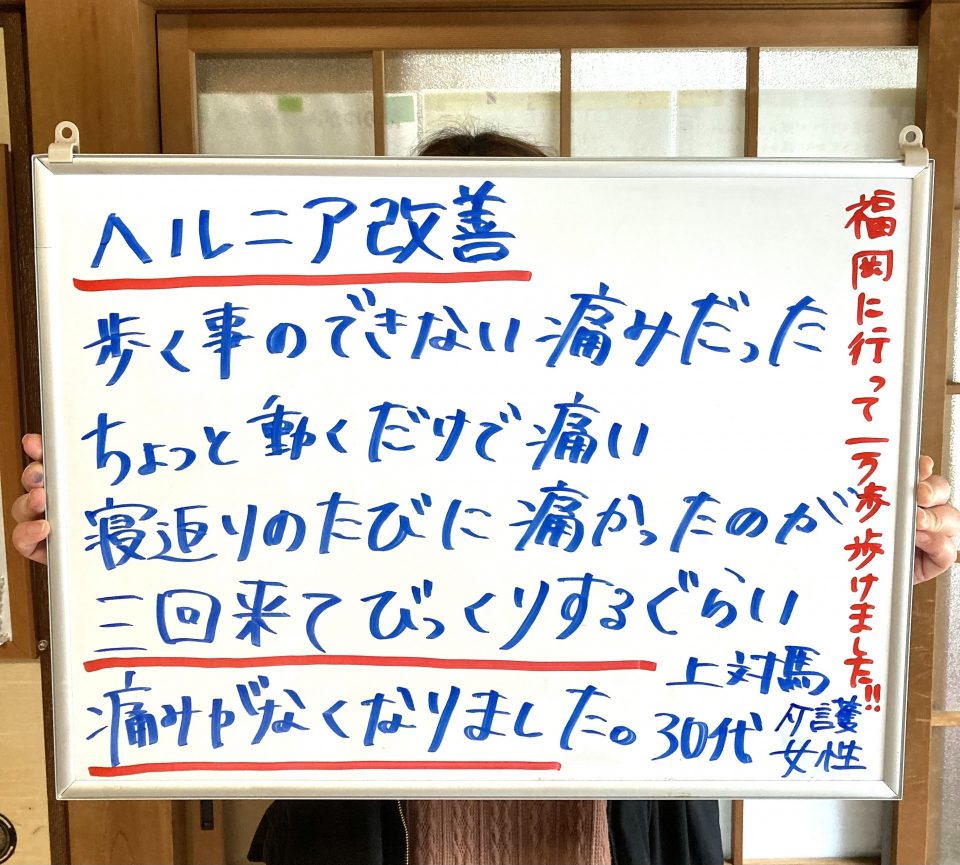 ヘルニア改善
歩く事のできない痛みだった
ちょっと動くだけで痛い
寝返りのたびに痛かったのが
三回来てびっくりするぐらい
痛みがなくなりました。
上対馬
30代
介護
女性
福岡に行って一万歩歩けました!!